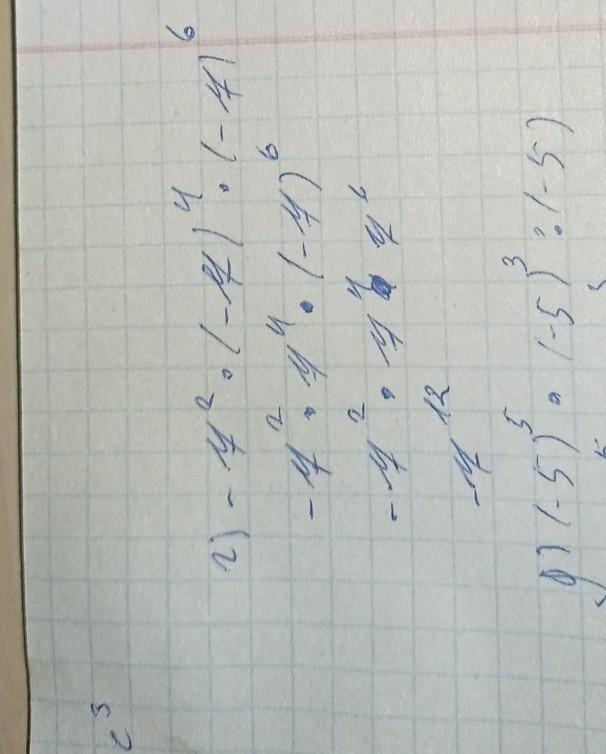 c³
г) - 7² · (-7)⁴ · (-7)⁶
- 7² · 7⁴ · (-7)⁶
- 7² · 7⁴ · 7⁶
- 7¹²
д) (-5)⁵ · (-5)³ : (-5)